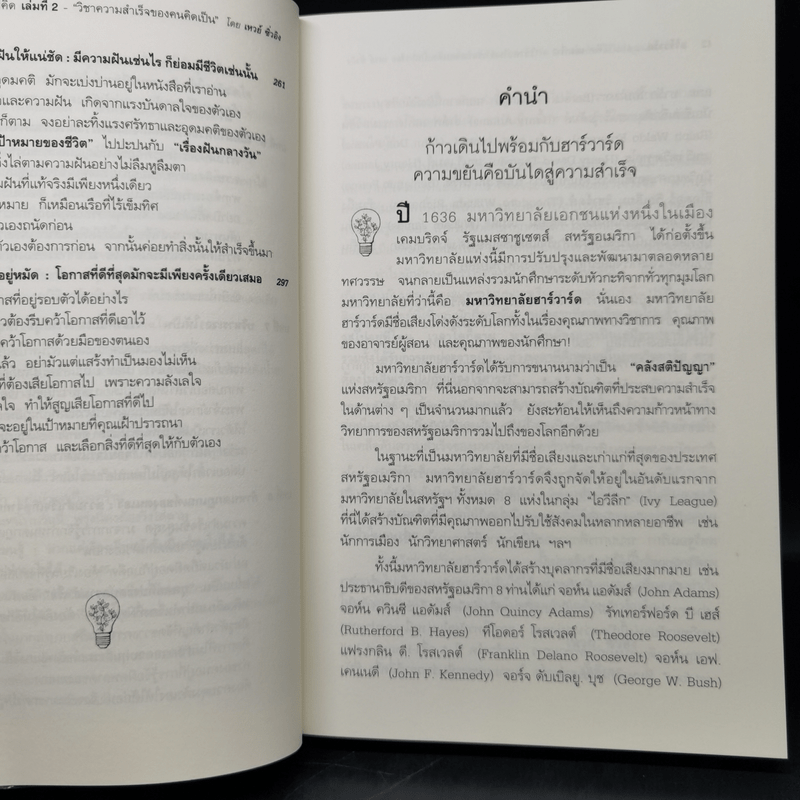 คิด เล่มที่ 2 - "วิชาความสำเร็จของคนคิดเป็น" โดย เหวย์ ซิ่วอิง
ฝันให้แน่ชัด : มีความฝันเช่นไร ก็ย่อมมีชีวิตเช่นนั้น 261
อุดมคติ มักจะเบ่งบานอยู่ในหนังสือที่เราอ่าน
และความฝัน เกิดจากแรงบันดาลใจของตัวเอง
ก็ตาม จงอย่าละทิ้งแรงศรัทธาและอุดมคติของตัวเอง
ป้าหมายของชีวิต" ไปปะปนกับ "เรื่องฝันกลางวัน"
ไล่ตามความฝันอย่างไม่ลืมหูลืมตา
ฝันที่แท้จริงมีเพียงหนึ่งเดียว
หมาย ก็เหมือนเรือที่ไร้เข็มทิศ
ัวเองถนัดก่อน
ตัวเองต้องการก่อน จากนั้นค่อยทำสิ่งนั้นให้สำเร็จขึ้นมา
อยู่หมัด : โอกาสที่ดีที่สุดมักจะมีเพียงครั้งเดียวเสมอ 297
าสที่อยู่รอบตัวได้อย่างไร
วต้องรีบคว้าโอกาสที่ดีเอาไว้
คว้าโอกาสด้วยมือของตนเอง
แล้ว อย่ามัวแต่แสร้งทำเป็นมองไม่เห็น
ที่ต้องเสียโอกาสไป เพราะความลังเลใจ
ใจ ทำให้สูญเสียโอกาสที่ดีไป
จะอยู่ในเป้าหมายที่คุณเฝ้าปรารถนา
คว้าโอกาส และเลือกสิ่งที่ดีที่สุดให้กับตัวเอง
คำนำ
ก้าวเดินไปพร้อมกับฮาร์วาร์ด
ความขยันคือบันไดสู่ความสำเร็จ
ปี 1636 มหาวิทยาลัยเอกชนแห่งหนึ่งในเมือง
เคมบริดจ์ รัฐแมสซาชูเซตส์ สหรัฐอเมริกา ได้ก่อตั้งขึ้น
มหาวิทยาลัยแห่งนี้มีการปรับปรุงและพัฒนามาตลอดหลาย
ทศวรรษ จนกลายเป็นแหล่งรวมนักศึกษาระดับหัวกะทิจากทั่วทุกมุมโลก
มหาวิทยาลัยที่ว่านี้คือ มหาวิทยาลัยฮาร์วาร์ด นั่นเอง มหาวิทยาลัย
ฮาร์วาร์ดมีชื่อเสียงโด่งดังระดับโลกทั้งในเรื่องคุณภาพทางวิชาการ คุณภาพ
ของอาจารย์ผู้สอน และคุณภาพของนักศึกษา!
มหาวิทยาลัยฮาร์วาร์ดได้รับการขนานนามว่าเป็น "คลังสติปัญญา"
แห่งสหรัฐอเมริกา ที่นี่นอกจากจะสามารถสร้างบัณฑิตที่ประสบความสำเร็จ
ในด้านต่าง ๆ เป็นจำนวนมากแล้ว ยังสะท้อนให้เห็นถึงความก้าวหน้าทาง
วิทยาการของสหรัฐอเมริการวมไปถึงของโลกอีกด้วย
ในฐานะที่เป็นมหาวิทยาลัยที่มีชื่อเสียงและเก่าแก่ที่สุดของประเทศ
สหรัฐอเมริกา มหาวิทยาลัยฮาร์วาร์ดจึงถูกจัดให้อยู่ในอันดับแรกจาก
มหาวิทยาลัยในสหรัฐฯ ทั้งหมด 8 แห่งในกลุ่ม "ไอวีลีก" (Ivy League)
ที่นี่ได้สร้างบัณฑิตที่มีคุณภาพออกไปรับใช้สังคมในหลากหลายอาชีพ เช่น
นักการเมือง นักวิทยาศาสตร์ นักเขียน ฯลฯ
ทั้งนี้มหาวิทยาลัยฮาร์วาร์ดได้สร้างบุคลากรที่มีชื่อเสียงมากมาย เช่น
ประธานาธิบดีของสหรัฐอเมริกา 8 ท่านได้แก่ จอห์น แอดัมส์ (John Adams)
จอห์น ควินซี แอดัมส์ (John Quincy Adams) รัทเทอร์ฟอร์ด บี เฮส์
(Rutherford B. Hayes) ทีโอดอร์ โรสเวลต์ (Theodore Roosevelt)
แฟรงกลิน ดี. โรสเวลต์ (Franklin Delano Roosevelt) จอห์น เอฟ.
เคนเนดี (John F. Kennedy) จอร์จ ดับเบิลยู. บุช (George W. Bush)